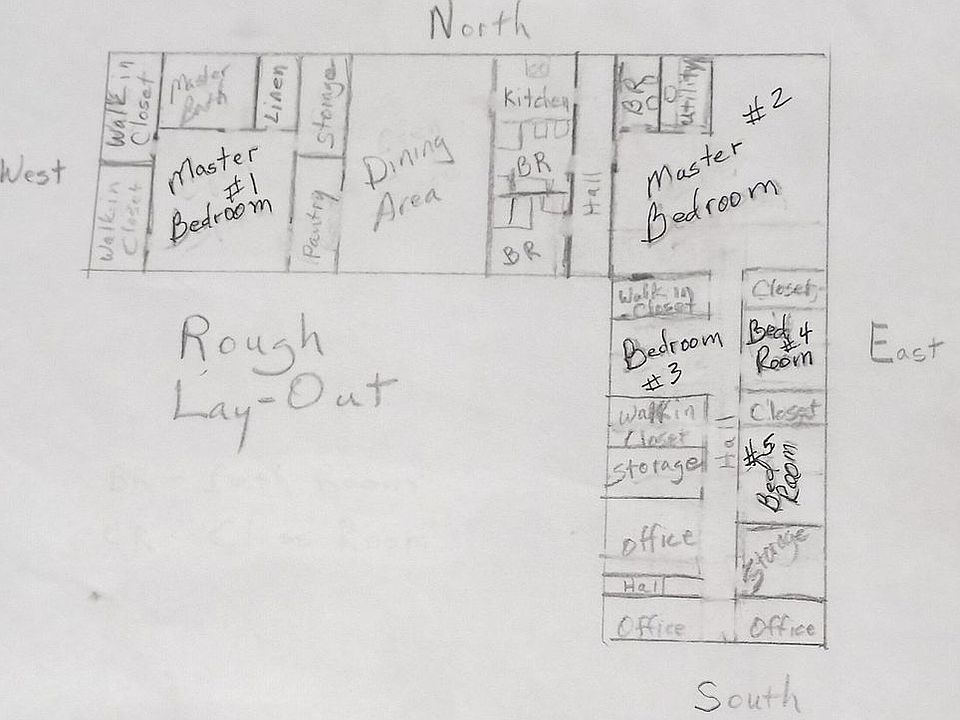 North
West
Walk in
Closet
Master
Bath
Linen
Storage
Kitchen
BR
Utility
#2
Master
Bedroom
Walkin
Closet
Master
#1
Bedroom
Pantry
Dining
Area
BR
BR
Hall
Rough
Lay-Out
Walk in
Closet
Closet
Bedroom
#3
Bed
#4
Room
East
Walkin
Closet
Closet
Storage
Hall
#5
Bed
Room
Office
Storage
Hall
Office
Office
South